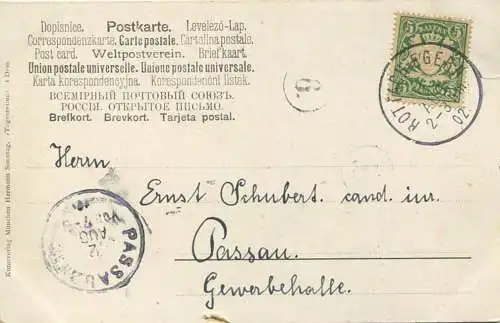 Dopisnice. Postkarte. Levelező-Lap.
Correspondenzkarte. Carte postale. Cartolina postale.
Post card. Weltpostverein. Briefkaart.
Union postale universelle. Unione postale universale.
Karta korespondencyjna. Korespondenční lístek.
ВСЕМІРНЫЙ ПОЧТОВЫЙ СОЮЗЪ.
РОССІЯ. ОТКРЫТОЕ ПИСЬМО.
Brefkort. Brevkort. Tarjeta postal.
Kunstverlag München Hermann Sonntag.
5 BAYERN 5
2-3
02
9
Herrn
Ernst Schubert. cand. iur.
Passau.
Gewerbehalle.
PASSAU
12
AUG
Vor. 7-8